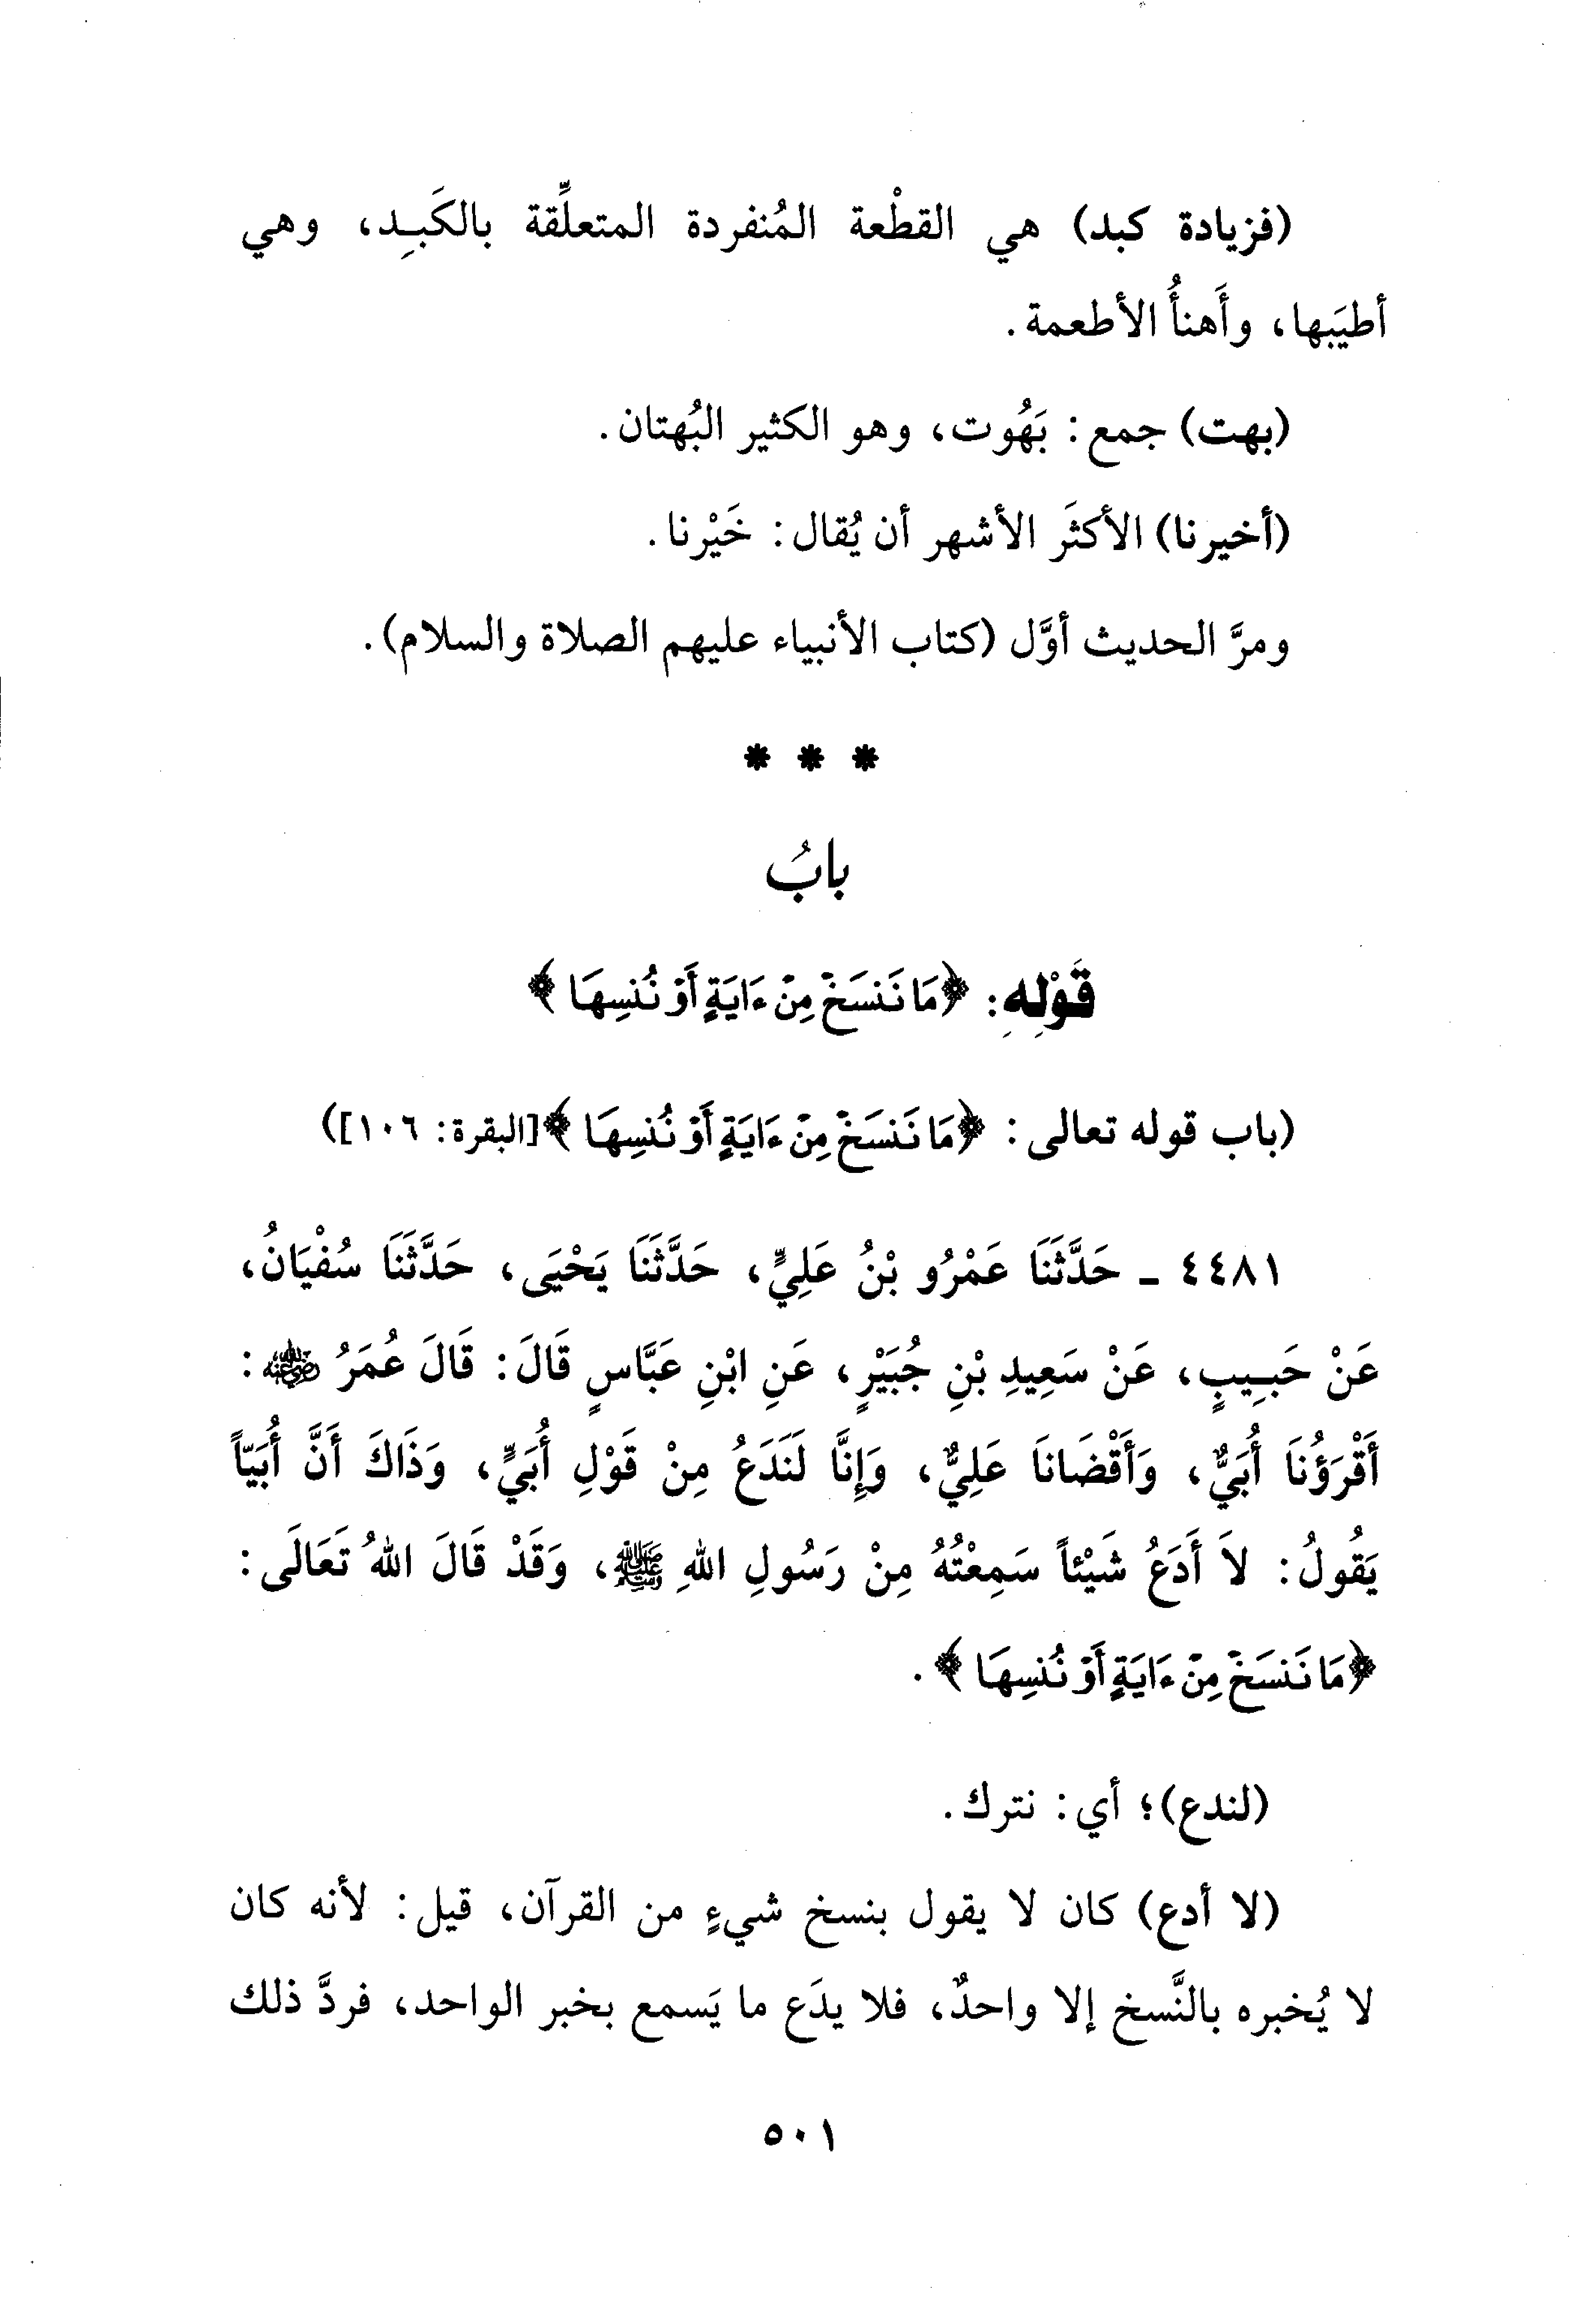 (فزيادة كبد) هي القطْعة المُنفردة المتعلِّقة بالكَبِد، وهي
أطيَبها، وأَهنأُ الأطعمة.
(بهت) جمع: بَهُوت، وهو الكثير البُهتان.
(أخيرنا) الأكثَر الأشهر أن يُقال: خَيْرنا.
ومرَّ الحديث أوَّل (كتاب الأنبياء عليهم الصلاة والسلام).
* * *
بابُ
قَوْلِهِ: ﴿مَا نَنسَخْ مِنْ ءَايَةٍ أَوْ نُنسِهَا﴾
(باب قوله تعالى: ﴿مَا نَنسَخْ مِنْ ءَايَةٍ أَوْ نُنسِهَا﴾[البقرة: ١٠٦])
٤٤٨١ ـ حَدَّثَنَا عَمْرُو بْنُ عَلِيٍّ، حَدَّثَنَا يَحْيَى، حَدَّثَنَا سُفْيَانُ،
عَنْ حَبِيبٍ، عَنْ سَعِيدِ بْنِ جُبَيْرٍ، عَنِ ابْنِ عَبَّاسٍ قَالَ: قَالَ عُمَرُ رضي الله عنه:
أَقْرَؤُنَا أُبَيٌّ، وَأَقْضَانَا عَلِيٌّ، وَإِنَّا لَنَدَعُ مِنْ قَوْلِ أُبَيٍّ، وَذَاكَ أَنَّ أُبَيّاً
يَقُولُ: لاَ أَدَعُ شَيْئاً سَمِعْتُهُ مِنْ رَسُولِ اللهِ ﷺ، وَقَدْ قَالَ اللهُ تَعَالَى:
﴿مَا نَنسَخْ مِنْ ءَايَةٍ أَوْ نُنسِهَا﴾.
(لندع)؛ أي: نترك.
(لا أدع) كان لا يقول بنسخ شيءٍ من القرآن، قيل: لأنه كان
لا يُخبره بالنَّسخ إلا واحدٌ، فلا يدَع ما يَسمع بخبر الواحد، فردَّ ذلك
٥٠١